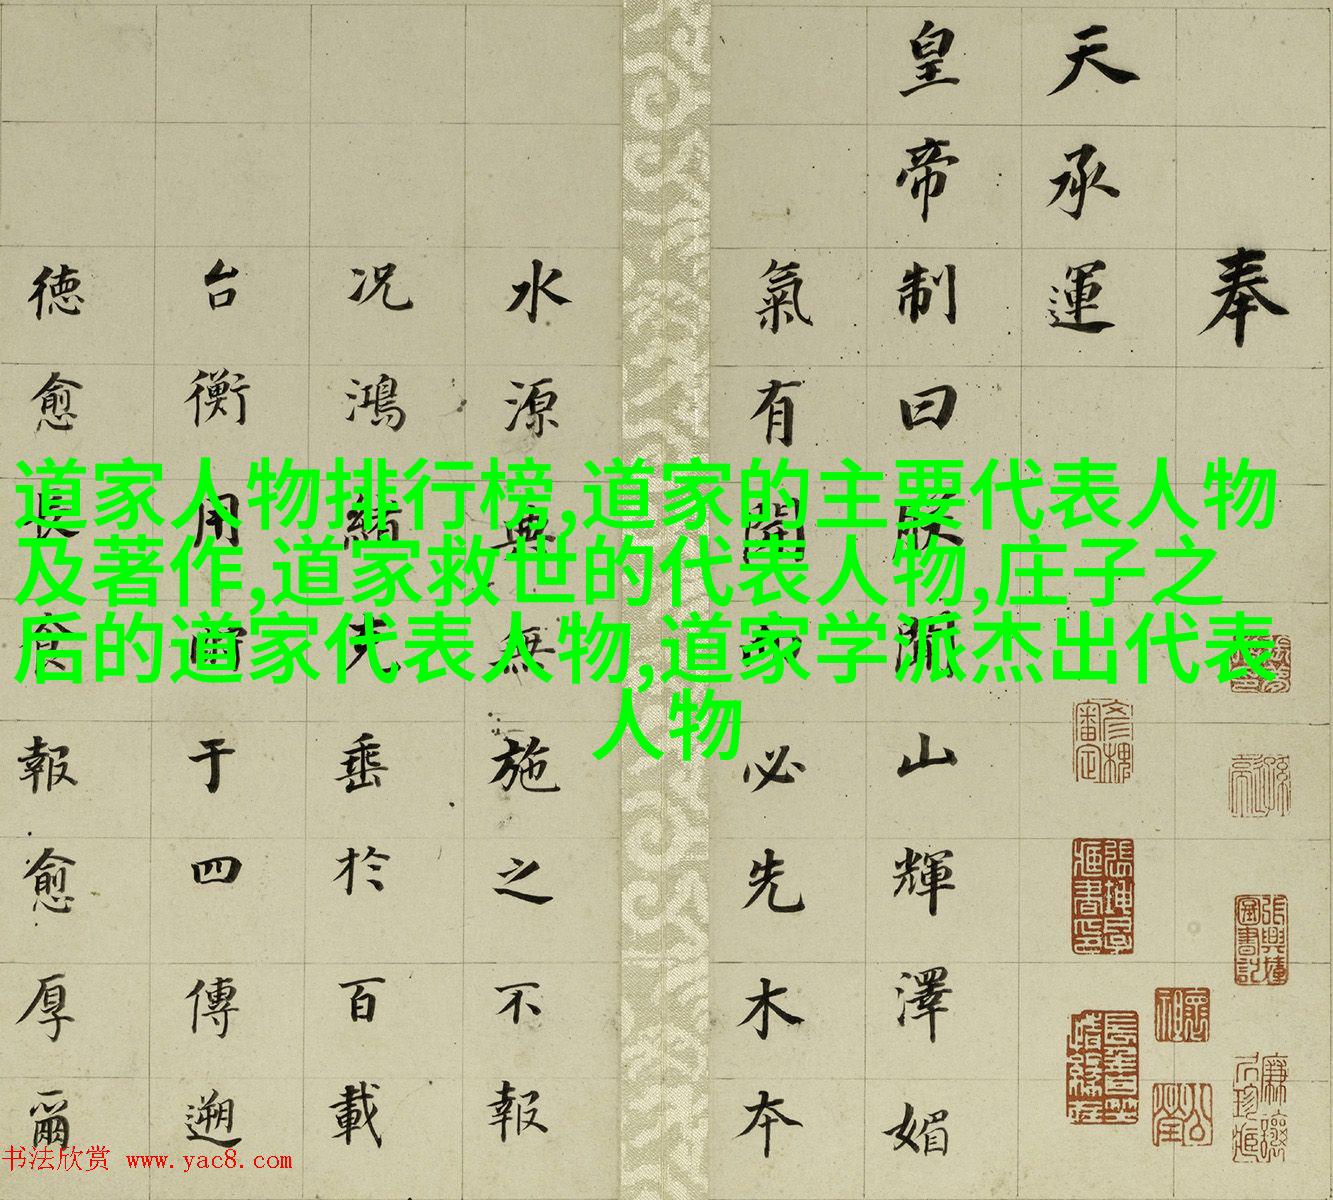 道家人物排行榜,道家的主要代表人物
及著作,道家救世的代表人物,庄子之
后的道家代表人物,道家学派杰出代表
人物
奉
天承運
皇帝制曰朕山輝澤媚
氣有開必先木本
水源無施之不報
况鴻緒垂於百載
台衡用于四傳遡
德愈長食報愈厚爾
书法欣赏 www.yac8.com